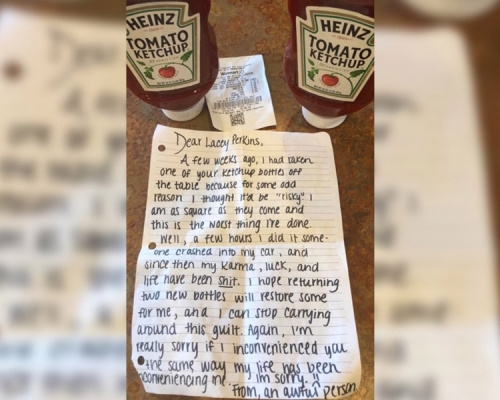 HEINZ
TOMATO
KETCHUP
HEINZ
TOMATO
KETCHUP
Walmart
Dear Lacey Perkins,
A few weeks ago, I had taken
one of your ketchup bottles off
the table because for some odd
reason I thought it'd be "risky" I
am as square as they come and
this is the worst thing I've done.
Well, a few hours I did it some-
one crashed into my car, and
since then my karma, luck, and
life have been shit. I hope returning
two new bottles will restore some
for me, and I can stop carrying
around this guilt. Again, I'm
really sorry if I inconvenienced you
the same way my life has been
inconveniencing me. I'm sorry.
From, an awful person